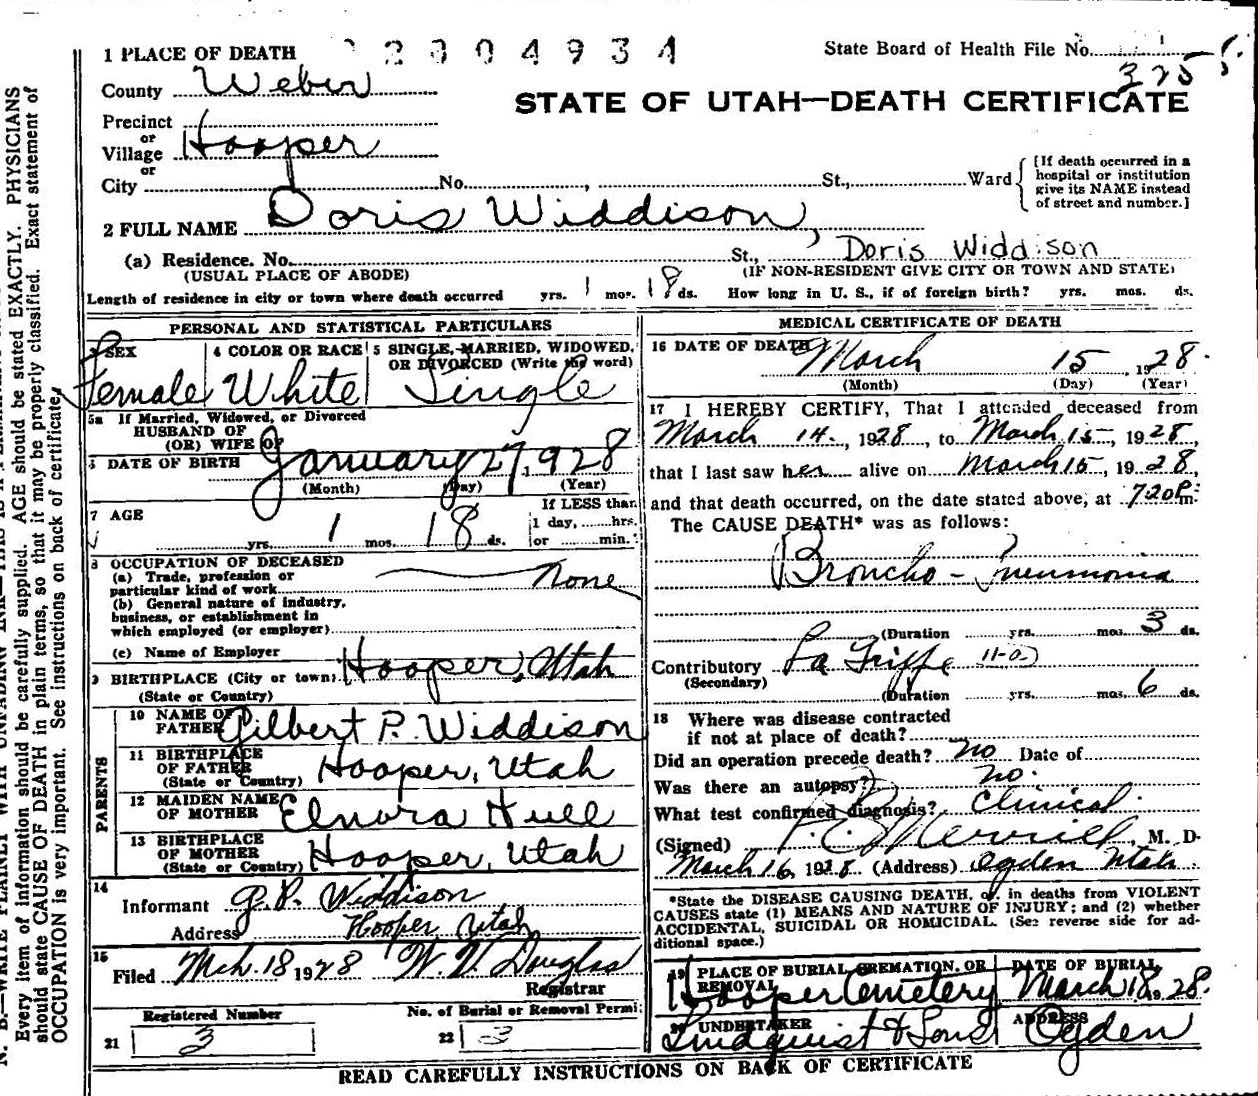 1 PLACE OF DEATH 2804934 State Board of Health File No. 325
County Weber
STATE OF UTAH—DEATH CERTIFICATE
Precinct
or
Village Hooper
or
City No. , St., Ward
[If death occurred in a
hospital or institution
give its NAME instead
of street and number.]
2 FULL NAME Doris Widdison,
(a) Residence. No. St., Doris Widdison
(USUAL PLACE OF ABODE) (IF NON-RESIDENT GIVE CITY OR TOWN AND STATE)
Length of residence in city or town where death occurred yrs. 1 mos. 18 ds. How long in U. S., if of foreign birth? yrs. mos. ds.
PERSONAL AND STATISTICAL PARTICULARS
SEX 4 COLOR OR RACE 5 SINGLE, MARRIED, WIDOWED,
OR DIVORCED (Write the word)
Female White Single
5a If Married, Widowed, or Divorced
HUSBAND OF
(OR) WIFE OF
6 DATE OF BIRTH January 27 1928
(Month) (Day) (Year)
7 AGE If LESS than
1 day, hrs.
yrs. 1 mos. 18 ds. or min.
8 OCCUPATION OF DECEASED
(a) Trade, profession or
particular kind of work None
(b) General nature of industry,
business, or establishment in
which employed (or employer)
(c) Name of Employer
9 BIRTHPLACE (City or town) Hooper, Utah
(State or Country)
PARENTS
10 NAME OF
FATHER Gilbert P. Widdison
11 BIRTHPLACE
OF FATHER Hooper, Utah
(State or Country)
12 MAIDEN NAME
OF MOTHER Elnora Hull
13 BIRTHPLACE
OF MOTHER Hooper, Utah
(State or Country)
14
Informant G. P. Widdison
Address Hooper Utah
15
Filed Mch. 18 1928 W. W. Douglas
Registrar
Registered Number No. of Burial or Removal Permit
21 3 22 3
MEDICAL CERTIFICATE OF DEATH
16 DATE OF DEATH March 15, 1928.
(Month) (Day) (Year)
17 I HEREBY CERTIFY, That I attended deceased from
March 14, 1928, to March 15, 1928,
that I last saw her alive on March 15, 1928,
and that death occurred, on the date stated above, at 720 P m.
The CAUSE DEATH* was as follows:
Broncho-Pneumonia
(Duration yrs. mos. 3 ds.
Contributory La Grippe
(Secondary)
(Duration yrs. mos. 6 ds.
18 Where was disease contracted
if not at place of death?
Did an operation precede death? no Date of
Was there an autopsy? no.
What test confirmed diagnosis? Clinical.
(Signed) Merrill, M. D.
March 16, 1928 (Address) Ogden Utah
*State the DISEASE CAUSING DEATH, or, in deaths from VIOLENT
CAUSES state (1) MEANS AND NATURE OF INJURY; and (2) whether
ACCIDENTAL, SUICIDAL OR HOMICIDAL. (See reverse side for ad-
ditional space.)
19 PLACE OF BURIAL, CREMATION, OR
REMOVAL DATE OF BURIAL
Hooper Cemetery March 18 1928.
20 UNDERTAKER ADDRESS
Lindquist & Sons Ogden
READ CAREFULLY INSTRUCTIONS ON BACK OF CERTIFICATE
N. B.—WRITE PLAINLY WITH UNFADING INK—THIS IS A PERMANENT
Every item of information should be carefully supplied. AGE should be stated EXACTLY. PHYSICIANS
should state CAUSE OF DEATH in plain terms, so that it may be properly classified. Exact statement of
OCCUPATION is very important. See instructions on back of certificate.